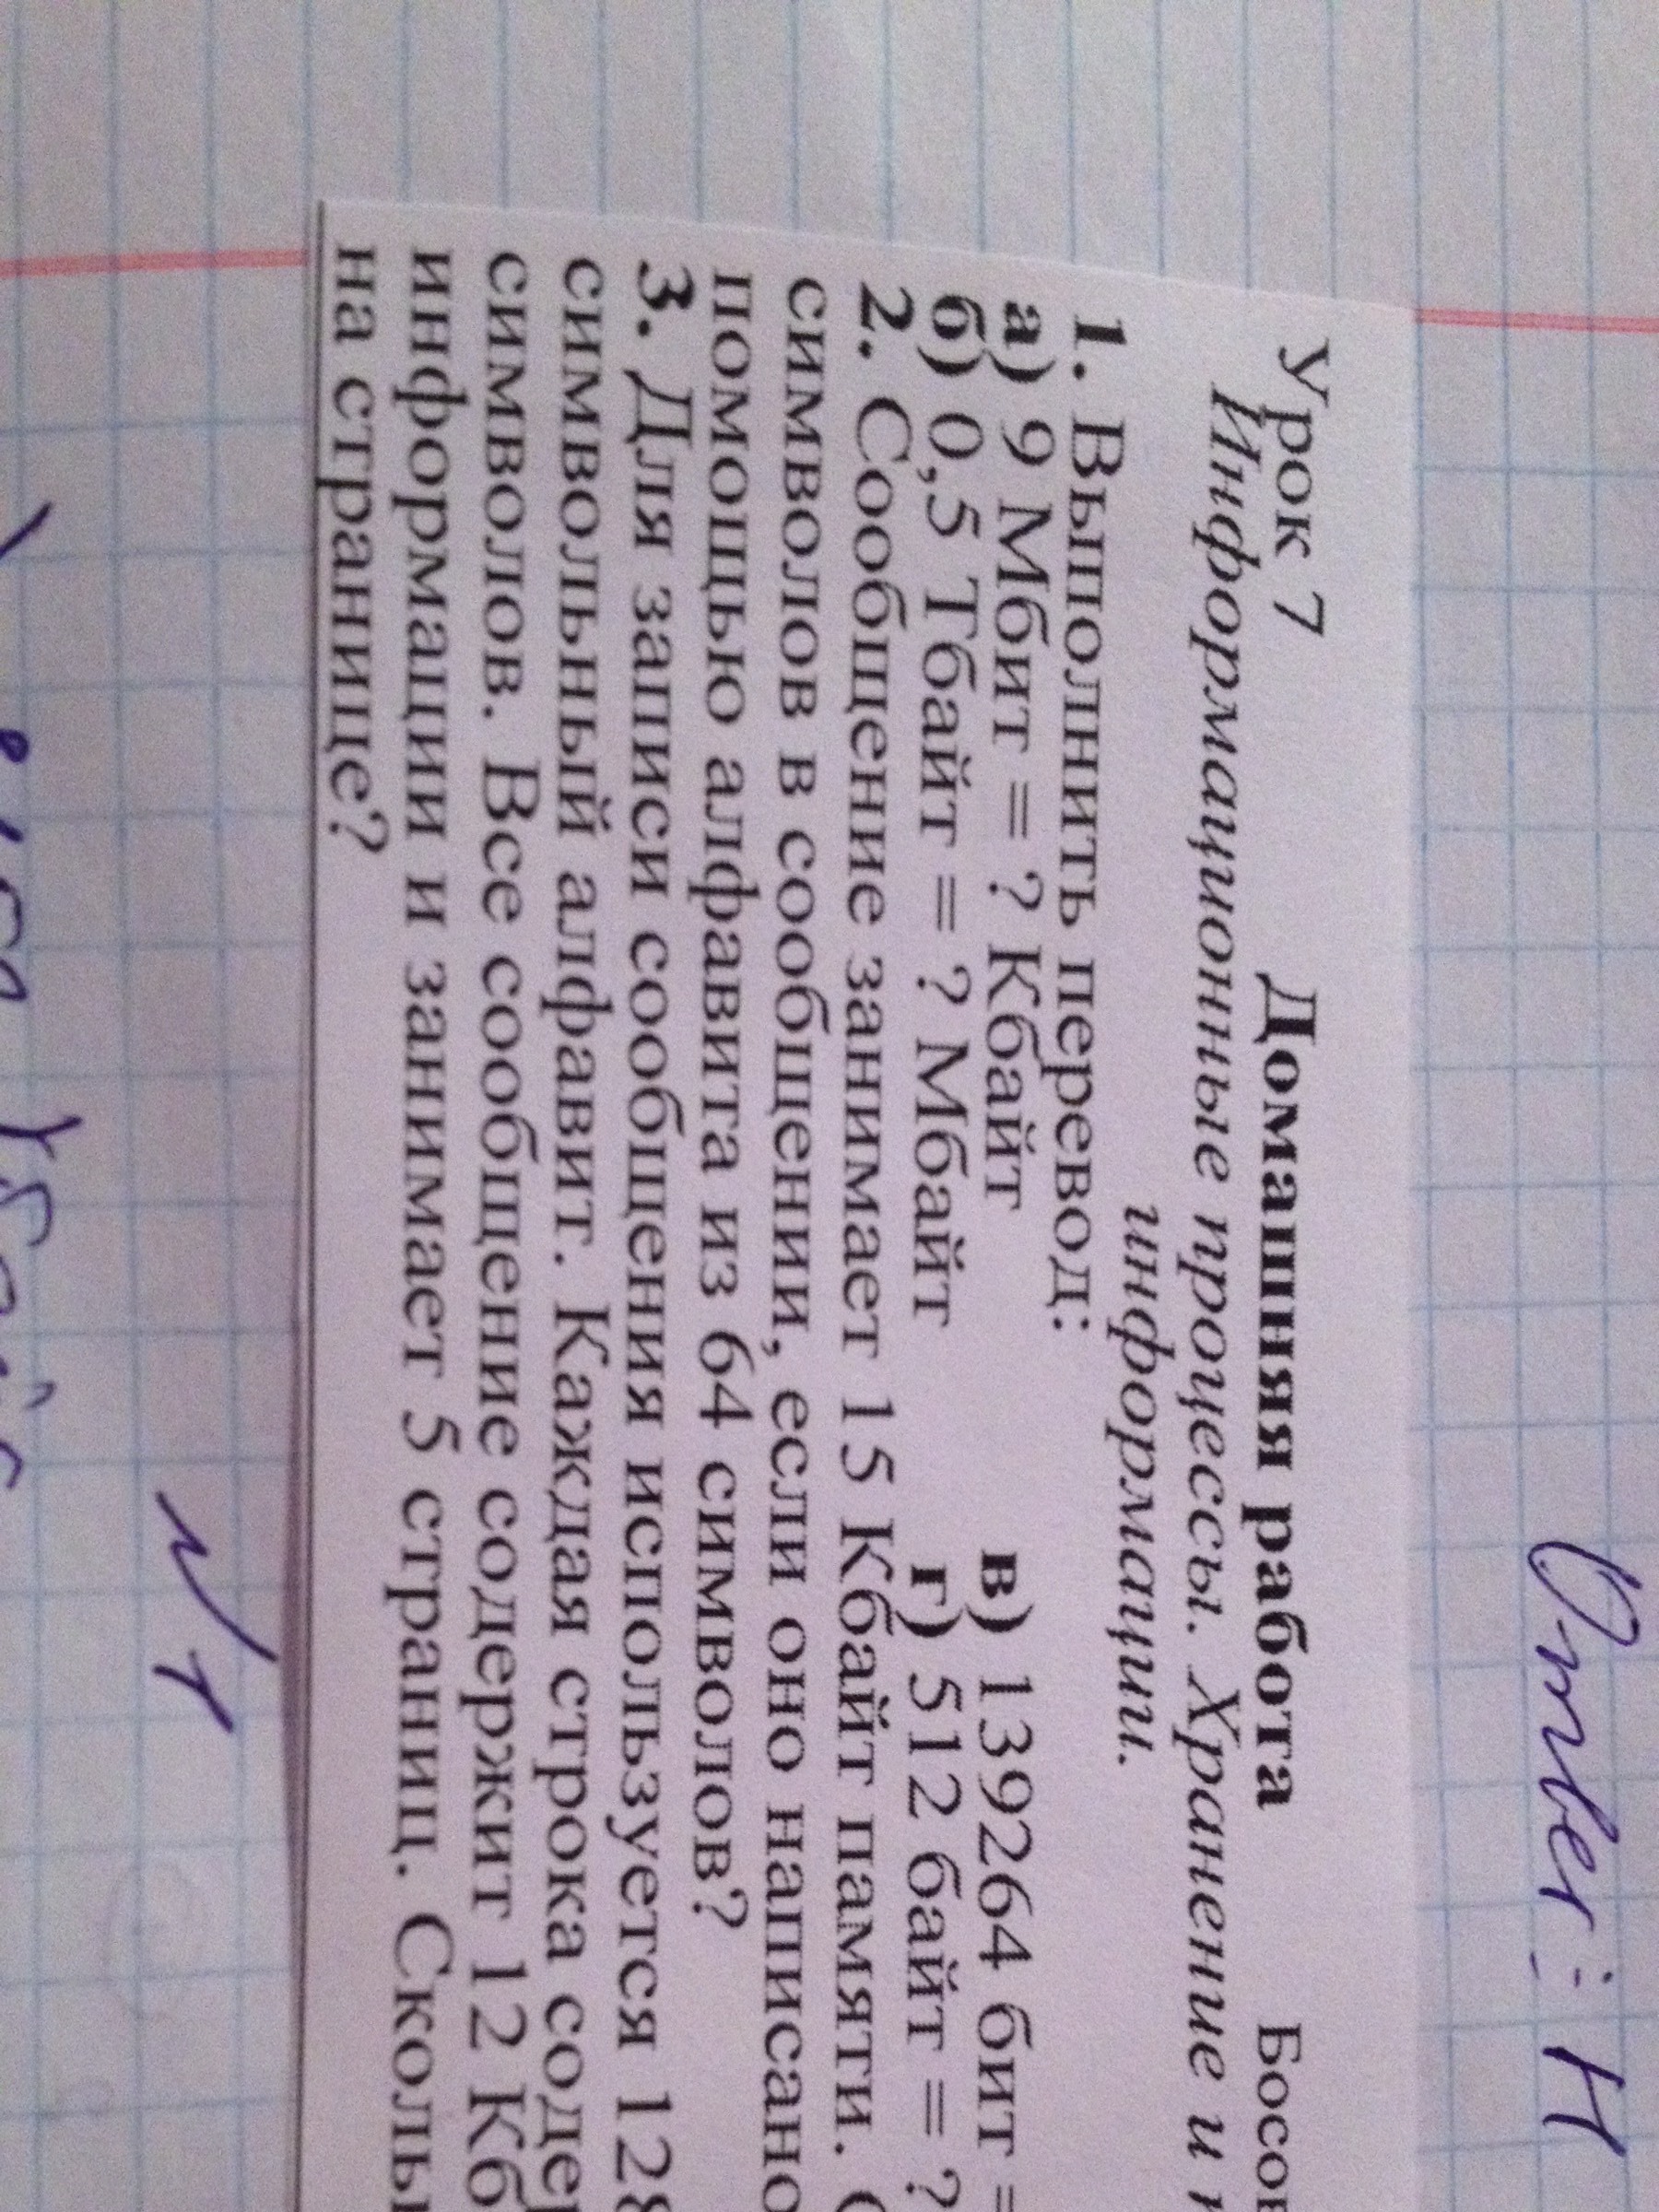 Ответ: Н
Урок 7 Домашняя работа
Информационные процессы. Хранение и
информации.
1. Выполнить перевод:
а) 9 Мбит = ? Кбайт в) 139264 бит =
б) 0,5 Тбайт = ? Мбайт г) 512 байт = ?
2. Сообщение занимает 15 Кбайт памяти.
символов в сообщении, если оно написано
помощью алфавита из 64 символов?
3. Для записи сообщения используется 128
символьный алфавит. Каждая строка
символов. Все сообщение содержит 12
информации и занимает 5 страниц.
на странице?
№1